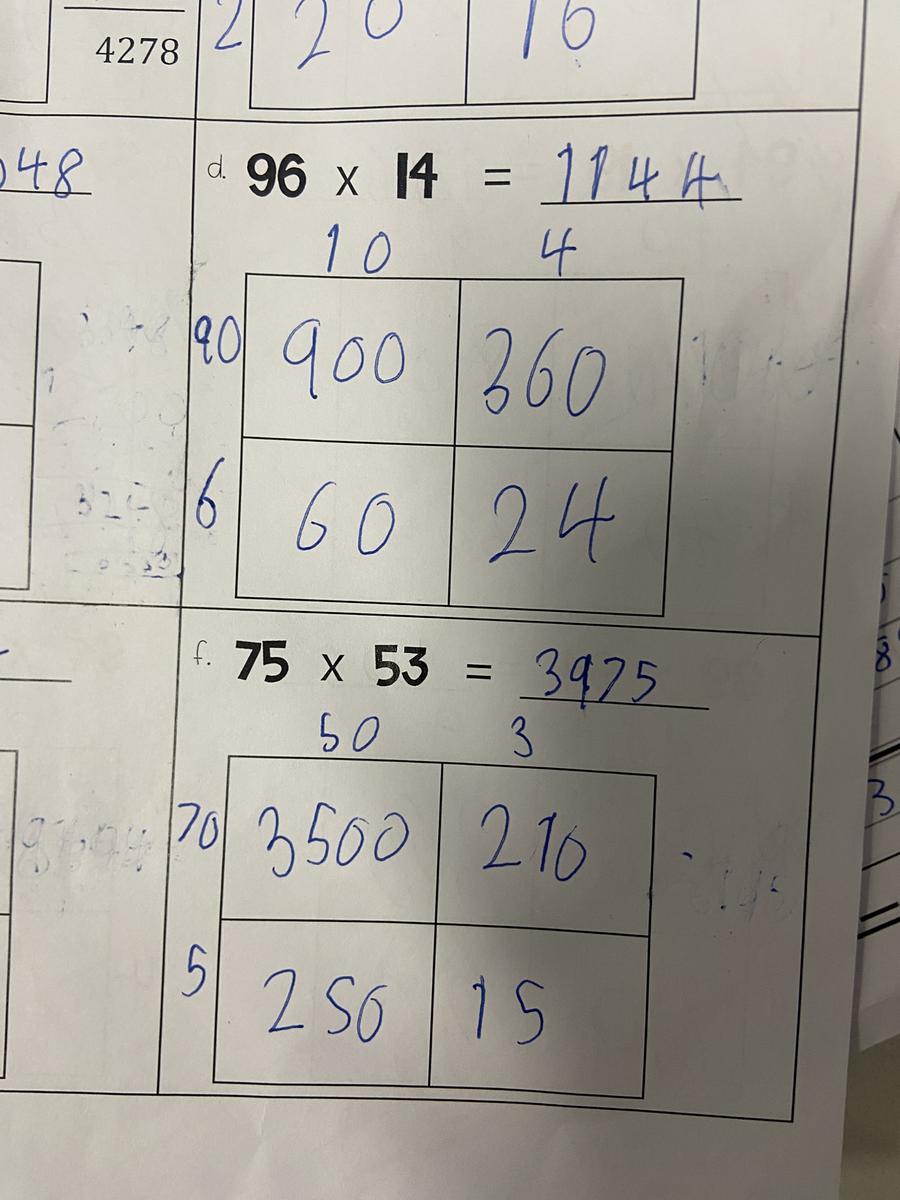 4278
2 20 16
48
d. 96 x 14 = 1144
10 4
90 900 360
6 60 24
f. 75 x 53 = 3975
50 3
70 3500 210
5 250 15
8
3